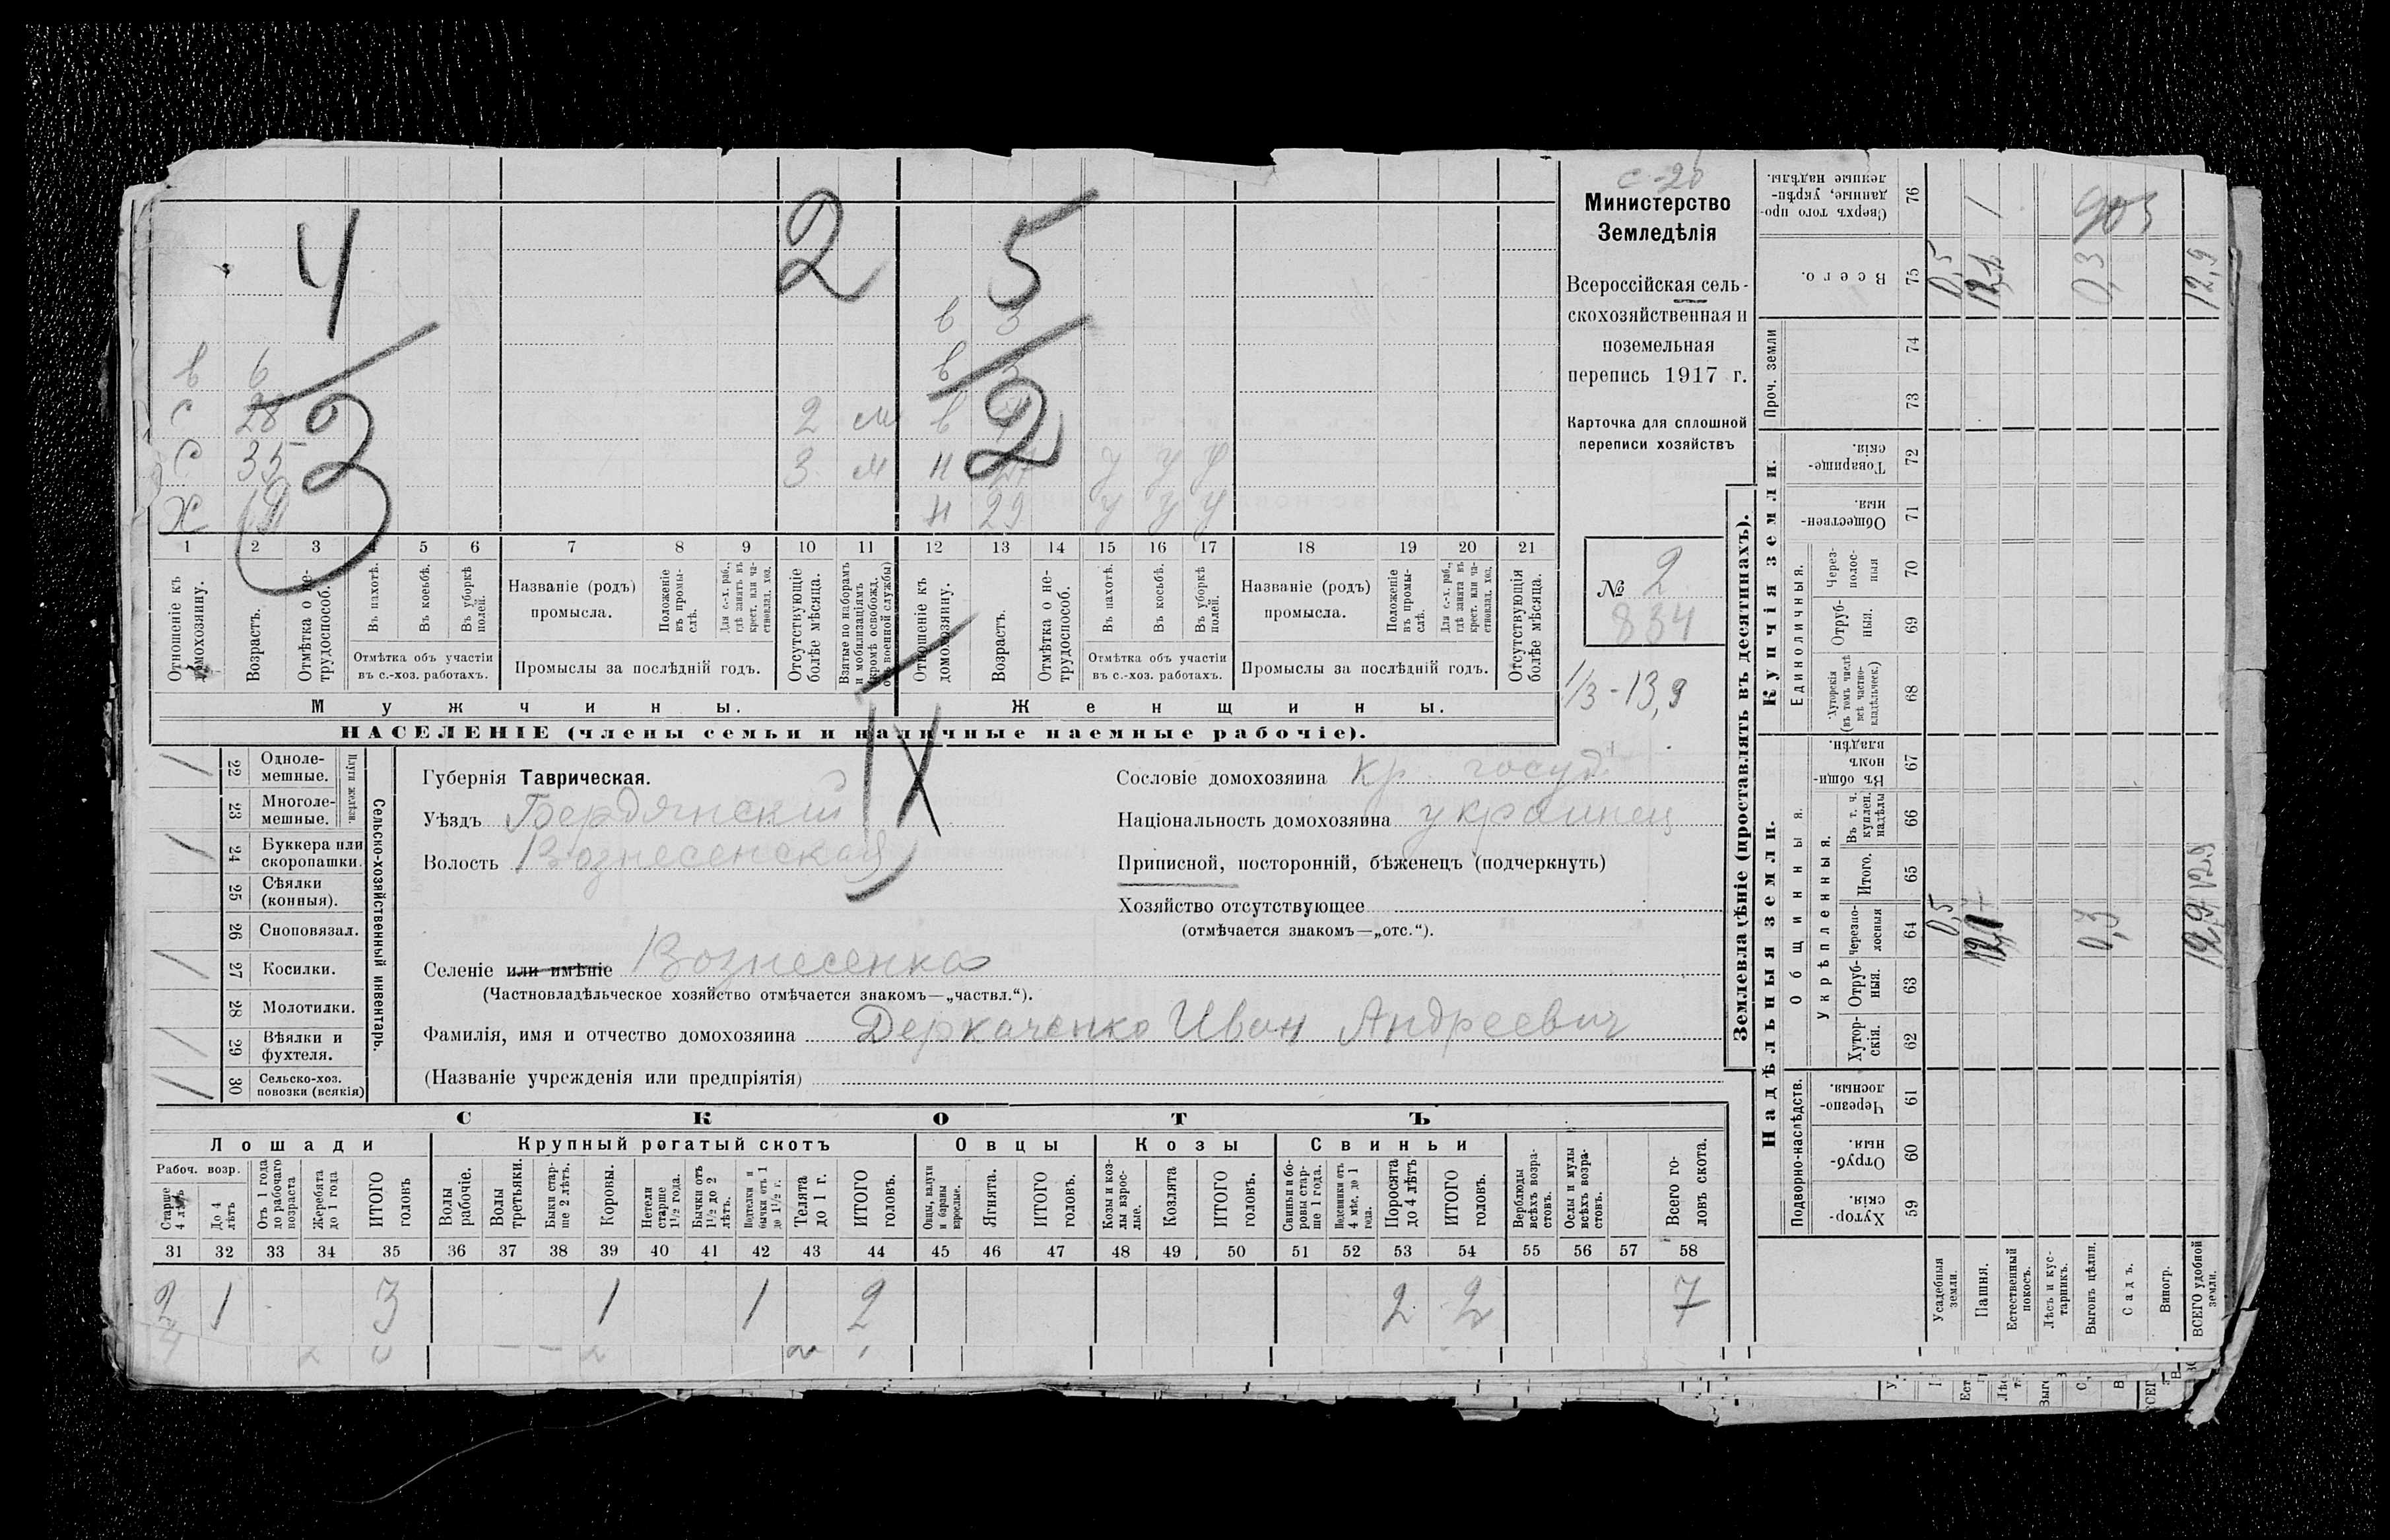 4 2 5
в 3
в 6 в 3
с 28 2 м в
С 35 3 м н У У У
Х н 29 У У У
3 2
1 2 3 4 5 6 7 8 9 10 11 12 13 14 15 16 17 18 19 20 21
Отношеніе къ домохозяину.
Возрастъ.
Отмѣтка о не-трудоспособ.
Въ пахотѣ.
Въ косьбѣ.
Въ уборкѣ полей.
Отмѣтка объ участіи
въ с.-хоз. работахъ.
Названіе (родъ)
промысла.
Положеніе въ промы-слѣ.
Для с.-х. раб., гдѣ занятъ въ крест. или ча-стновлад. хоз.
Промыслы за послѣдній годъ.
Отсутствующіе болѣе мѣсяца.
Взятые по наборамъ и мобилизаціямъ (кромѣ освобожд. отъ военной службы)
Отношеніе къ домохозяину.
Возрастъ.
Отмѣтка о не-трудоспособ.
Въ пахотѣ.
Въ косьбѣ.
Въ уборкѣ полей.
Отмѣтка объ участіи
въ с.-хоз. работахъ.
Названіе (родъ)
промысла.
Положеніе въ промы-слѣ.
Для с.-х. раб., гдѣ занята въ крест. или ча-стновлад. хоз.
Промыслы за послѣдній годъ.
Отсутствующія болѣе мѣсяца.
Мужчины.
Женщины.
НАСЕЛЕНІЕ (члены семьи и наличные наемные рабочіе).
IX
с-20
Министерство
Земледѣлія
Всероссійская сель-
скохозяйственная и
поземельная
перепись 1917 г.
Карточка для сплошной
переписи хозяйствъ
№ 2
834
1/3 - 13,9
1 22 Однолемешные.
23 Многолемешные.
Плуги желѣзн.
1 24 Буккера или скоропашки.
25 Сѣялки (конныя).
26 Сноповязал.
1 27 Косилки.
28 Молотилки.
1 29 Вѣялки и фухтеля.
1 30 Сельско-хоз. повозки (всякія)
Сельско-хозяйственный инвентарь.
Губернія Таврическая.
Уѣздъ Бердянский
Волость Вознесенская
Сословіе домохозяина кр. госуд.
Національность домохозяина украинец
Приписной, посторонній, бѣженецъ (подчеркнуть)
Хозяйство отсутствующее
(отмѣчается знакомъ—„отс.“).
Селеніе или имѣніе Вознесенка
(Частновладѣльческое хозяйство отмѣчается знакомъ—„частвл.“).
Фамилія, имя и отчество домохозяина Деркаченко Иван Андреевич
(Названіе учрежденія или предпріятія)
СКОТЪ
Лошади
Крупный рогатый скотъ
Овцы
Козы
Свиньи
Рабоч. возр.
Старше 4 лѣтъ
До 4 лѣтъ
Отъ 1 года до рабочаго возраста
Жеребята до 1 года
ИТОГО головъ
Волы рабочіе.
Волы третьяки.
Быки старше 2 лѣтъ.
Коровы.
Нетели старше 1½ года.
Бычки отъ 1½ до 2 лѣтъ.
Подтелки и бычки отъ 1 до 1½ г.
Телята до 1 г.
ИТОГО головъ.
Овцы, валухи и бараны взрослые.
Ягнята.
ИТОГО головъ.
Козы и козлы взрослые.
Козлята
ИТОГО головъ.
Свиньи и боровы старше 1 года.
Подсвинки отъ 4 мѣс. до 1 года.
Поросята до 4 лѣтъ
ИТОГО головъ.
Верблюды всѣхъ возрастовъ.
Ослы и мулы всѣхъ возрастовъ.
Всего головъ скота.
31 32 33 34 35 36 37 38 39 40 41 42 43 44 45 46 47 48 49 50 51 52 53 54 55 56 57 58
2 1 3 1 1 2 2 2 7
Землевладѣніе (проставлять въ десятинахъ).
Надѣльныя земли.
Купчія земли.
Проч. земли
Подворно-наслѣдств.
Общинныя.
Укрѣпленныя.
Единоличныя.
Хутор-скія. 59
Отруб-ныя. 60
Черезпо-лосныя. 61
Хутор-скія. 62
Отруб-ныя. 63
Черезпо-лосныя 64
Итого. 65
Въ т. ч. куплен. надѣлы 66
Въ общи-номъ владѣн. 67
Хуторскія (въ томъ числѣ всѣ частно-владѣльческ.) 68
Отруб-ныя. 69
Через-полос-ныя 70
Обществен-ныя. 71
Товарище-скія. 72
73
74
Всего. 75
Сверхъ того про-данные, укрѣп-ленные надѣлы. 76
Усадебныя земли. 0,5 0,5
Пашня. 12,1 12,1 1
Естественный покосъ.
Лѣсъ и кус-тарникъ.
Выгонъ цѣлин. 0,3 0,3
Садъ.
Виногр.
ВСЕГО удобной земли. 12,9 12,9 12,9